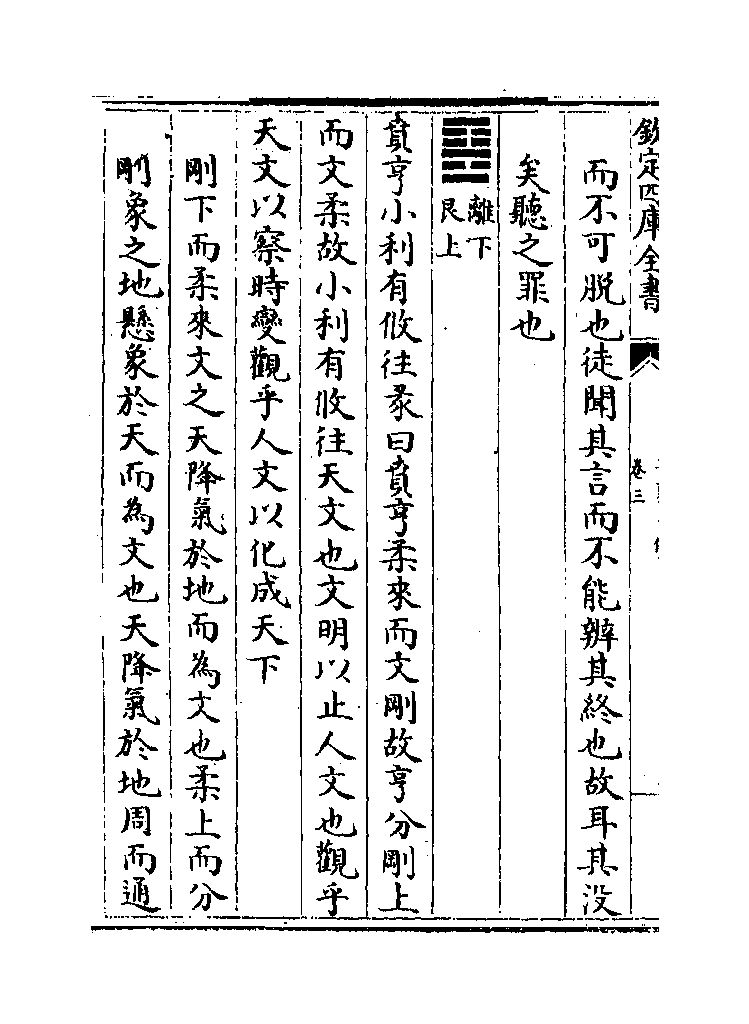 欽定四庫全書
卷三
而不可脱也徒聞其言而不能辨其終也故耳其没
矣聽之罪也
䷕
離下
艮上
賁亨小利有攸往彖曰賁亨柔來而文剛故亨分剛上
而文柔故小利有攸往天文也文明以止人文也觀乎
天文以察時變觀乎人文以化成天下
剛下而柔來文之天降氣於地而為文也柔上而分
剛象之地懸象於天而為文也天降氣於地周而通